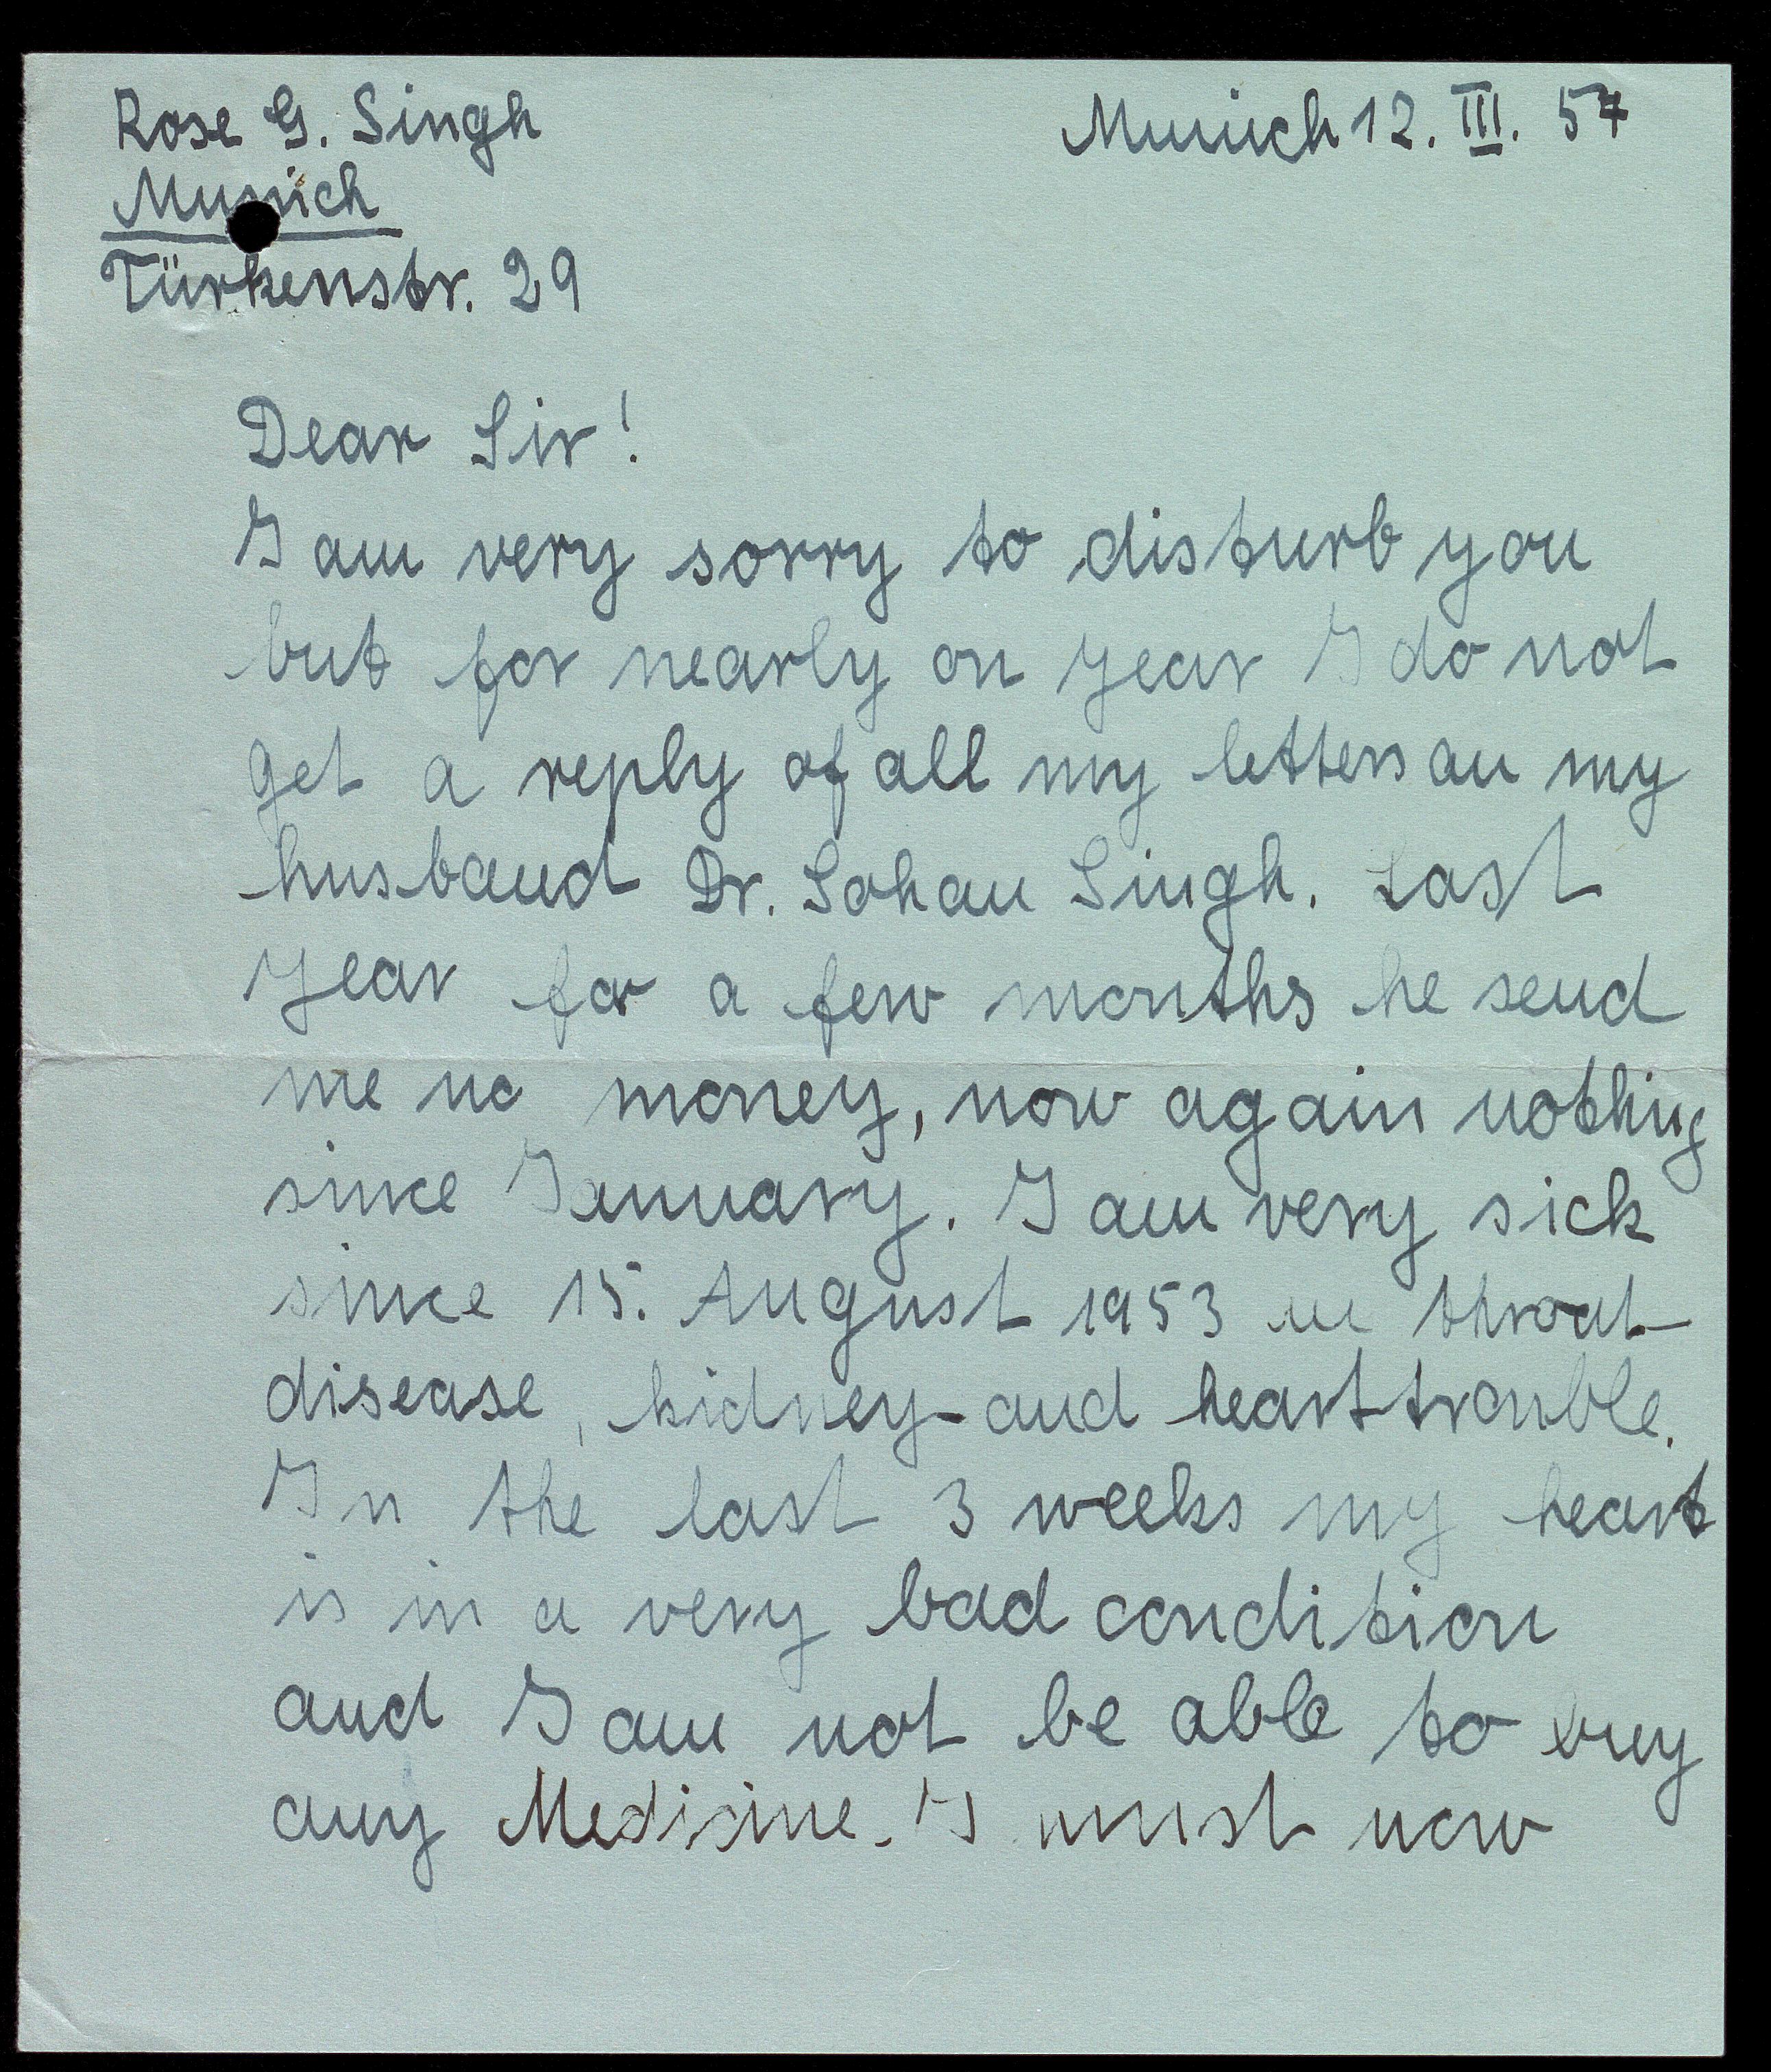 Rose G. Singh
Munich 12. III. 57
Munich
Türkenstr. 29
Dear Sir!
I am very sorry to disturb you
but for nearly on year I do not
get a reply of all my letters an my
husband Dr. Sohan Singh. Last
year for a few months he send
me no money, now again nothing
since January. I am very sick
since 15. August 1953 in throat-
disease, kidney- and hearttrouble.
In the last 3 weeks my heart
is in a very bad condition
and I am not be able to buy
any Medicine. I must now